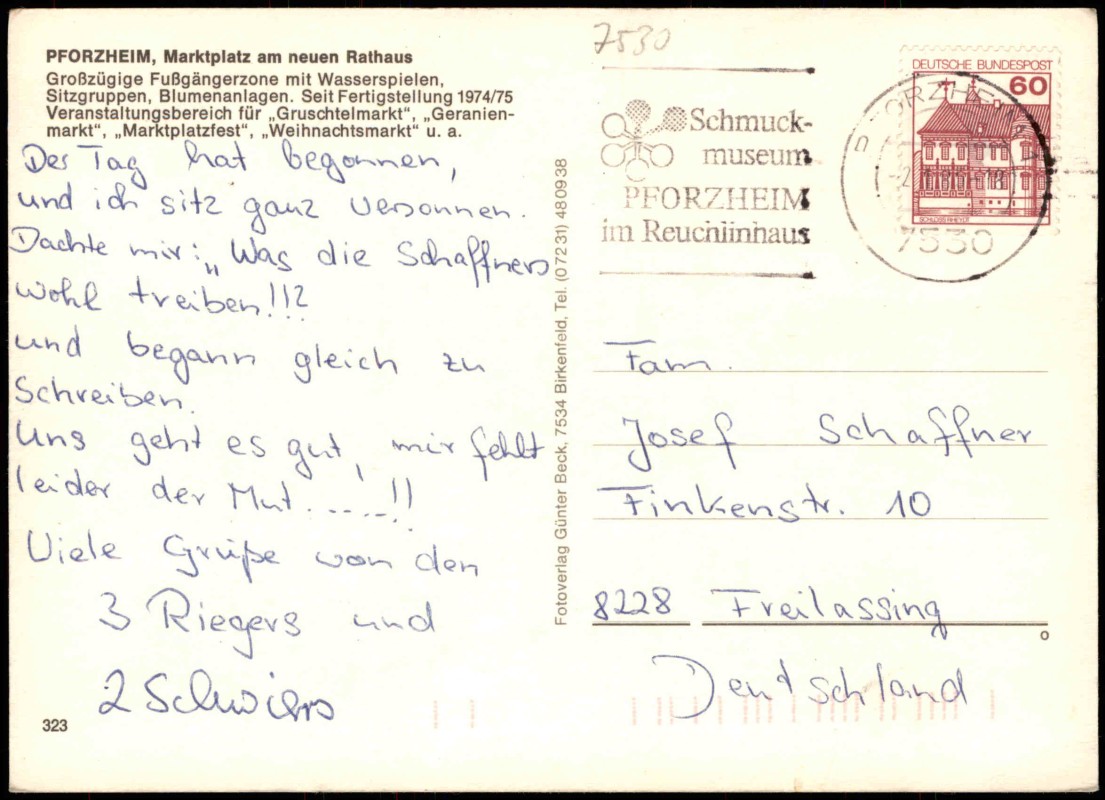 PFORZHEIM, Marktplatz am neuen Rathaus
Großzügige Fußgängerzone mit Wasserspielen,
Sitzgruppen, Blumenanlagen. Seit Fertigstellung 1974/75
Veranstaltungsbereich für „Gruschtelmarkt“, „Geranien-
markt“, „Marktplatzfest“, „Weihnachtsmarkt“ u. a.
Der Tag hat begonnen,
und ich sitz ganz versonnen.
Dachte mir: „Was die Schaffners
wohl treiben!!?
und begann gleich zu
Schreiben.
Uns geht es gut, mir fehlt
leider der Mut......!!
Viele Grüße von den
3 Riegers und
2 Schwiers
323
Fotoverlag Günter Beck, 7534 Birkenfeld, Tel. (07231) 480938
7530
Schmuck-
museum
PFORZHEIM
im Reuchlinhaus
DEUTSCHE BUNDESPOST
60
SCHLOSS RHEYDT
PFORZHEIM
7530
Fam.
Josef Schaffner
Finkenstr. 10
8228 Freilassing
Deutschland